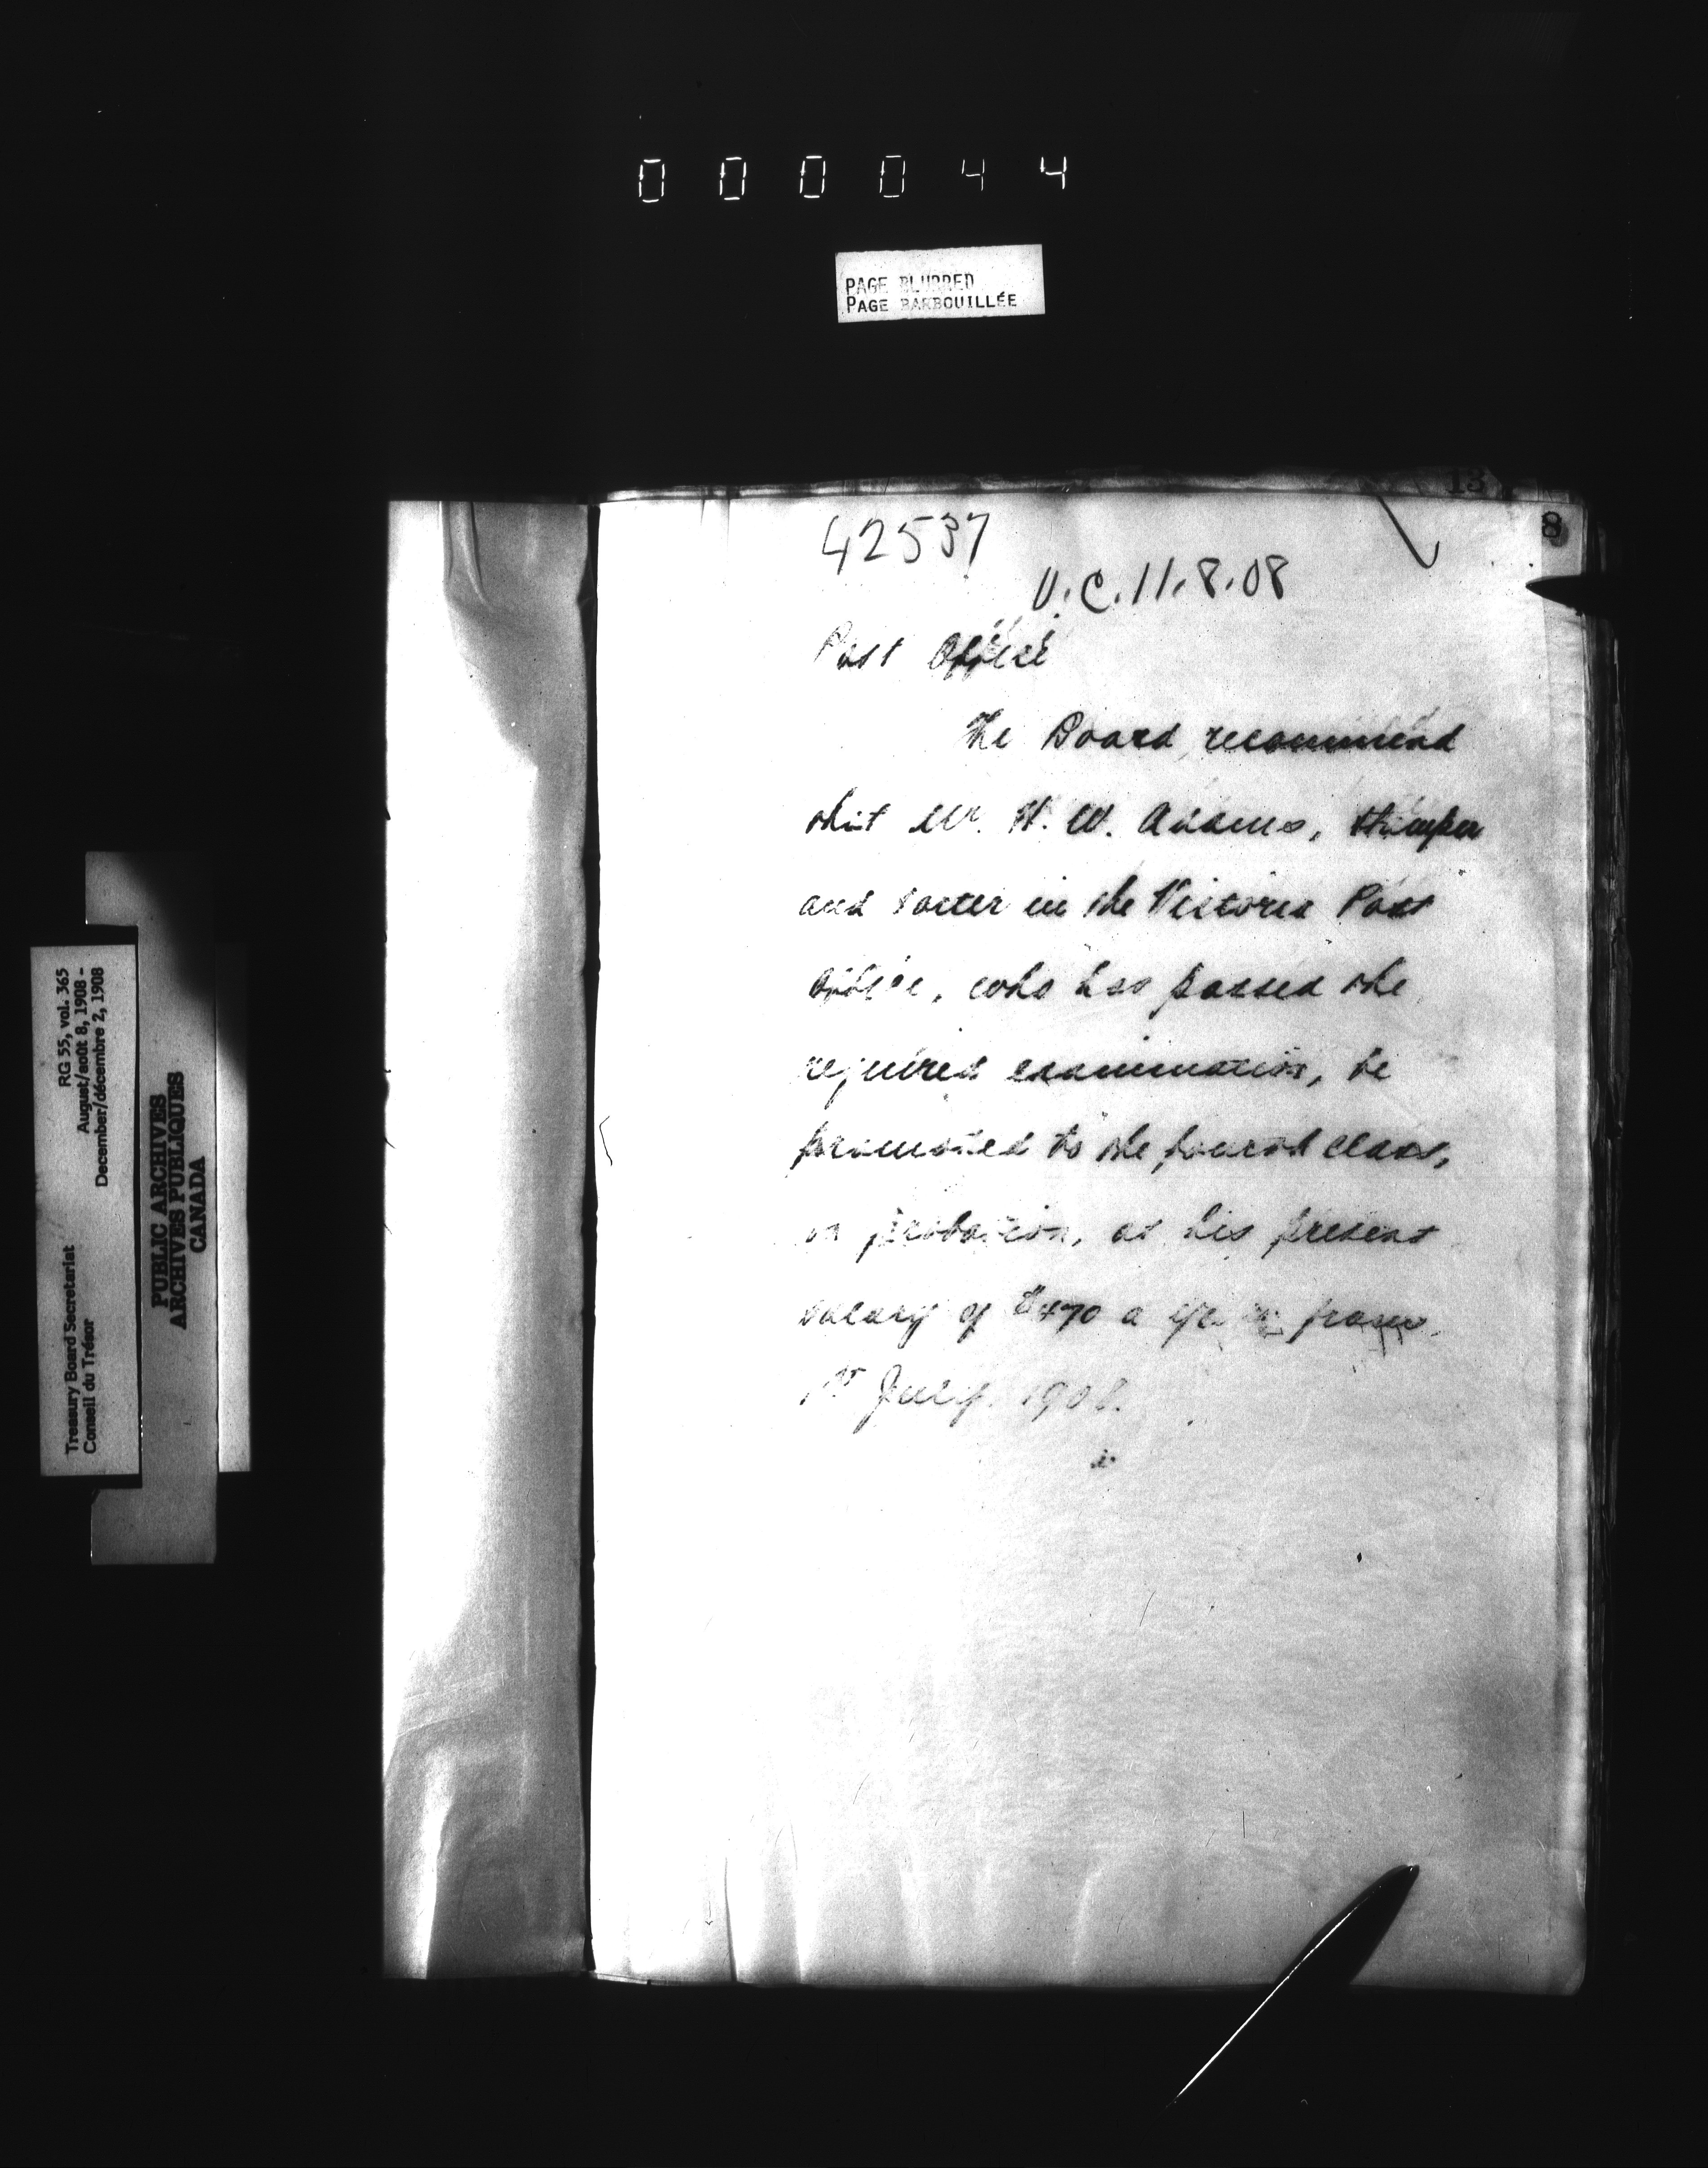 000044
PAGE BLURRED
PAGE BARBOUILLÉE
13
8
42537
U.C. 11.8.08
Post Office
The Board recommend
that Mr. H. W. Adams, stamper
and sorter in the Victoria Post
Office, who has passed the
required examination, be
promoted to the fourth class,
on probation, at his present
salary of $470 a year from
1st July, 1908.
RG 55, vol. 365
August/août 8, 1908 -
December/décembre 2, 1908
Treasury Board Secretariat
Conseil du Trésor
PUBLIC ARCHIVES
ARCHIVES PUBLIQUES
CANADA